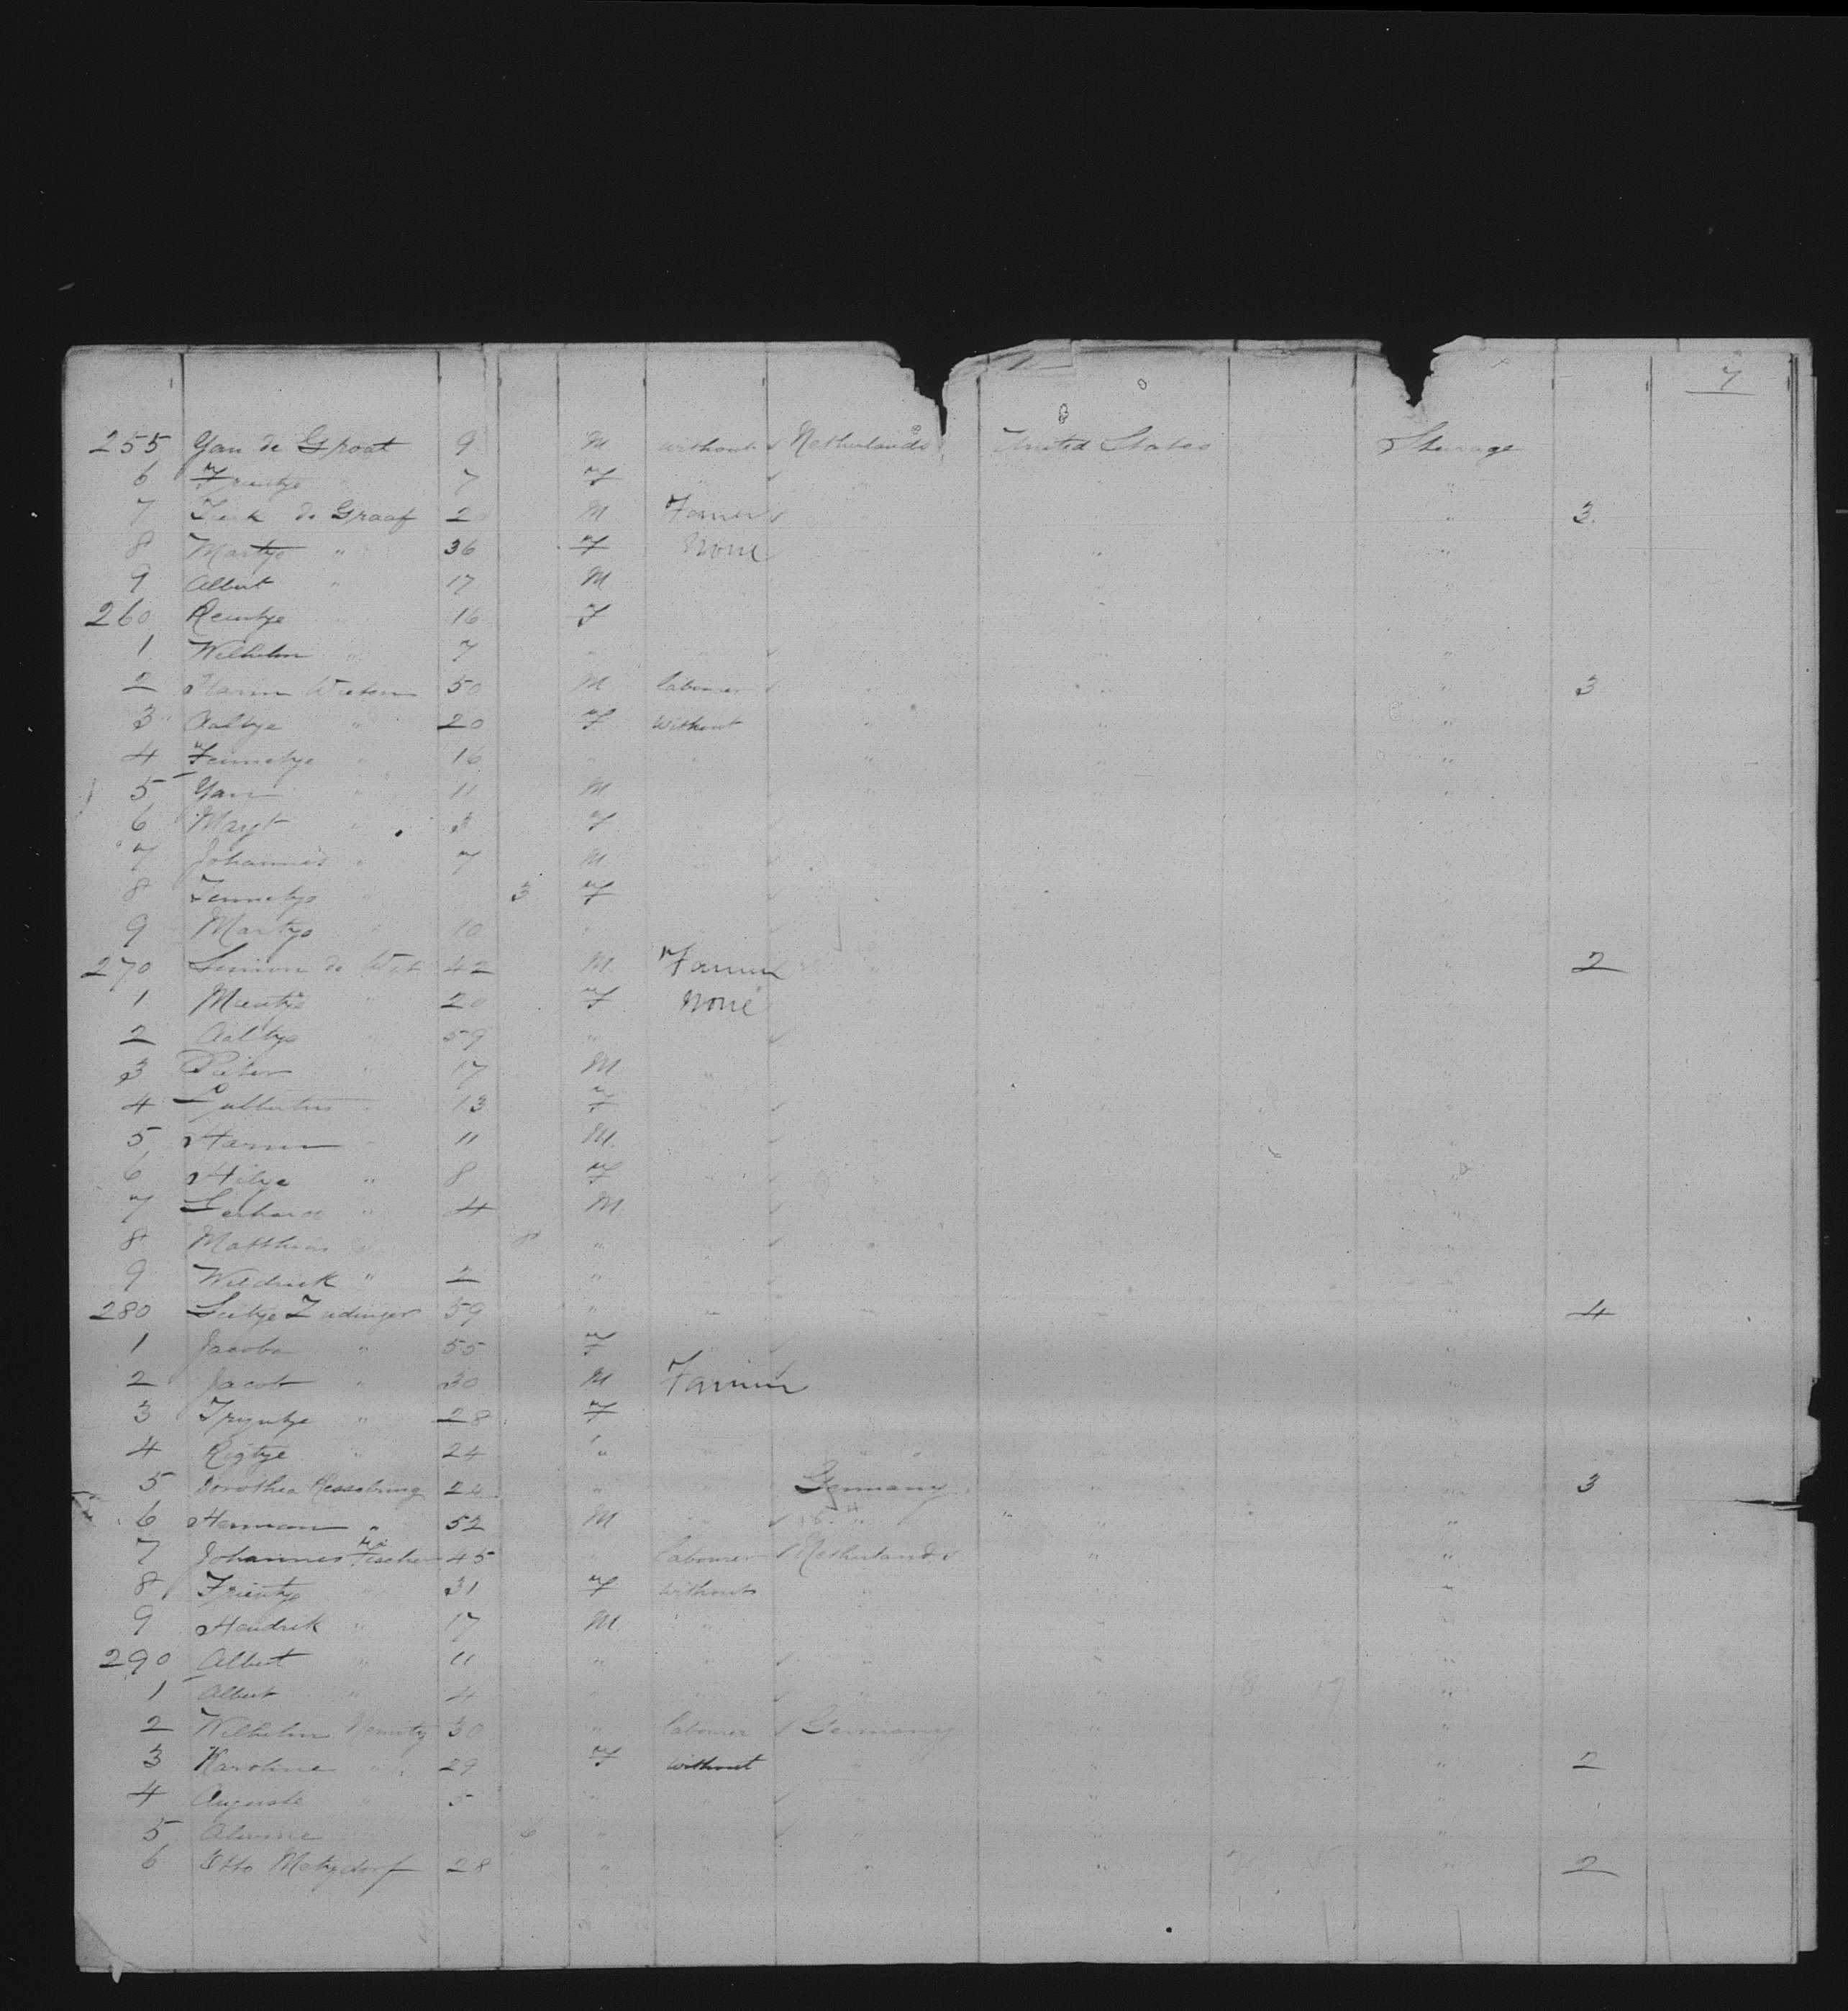 7
255 Yan de Groot 9 M without Netherlands United States Steerage
6 7 F "
7 de Graaf 2 M Farmer " 3
8 Martje " 36 F None " "
9 Albert " 17 M "
260 Reintje 16 F "
1 Wilhelm " 7 " " "
2 Harm 50 M labourer " " " 3
3 Aaltje " 20 F without " " "
4 Fennetje " 16 " " " " "
5 Yan " 11 M " "
6 Margt " 3 F "
7 Johannes " 7 M "
8 Fennetje " 3 F
9 Martje " 10 "
270 Simon de Wit 42 M Farmer " " 2
1 Mientje " 20 F None "
2 Aaltje " 59 "
3 Pieter " 17 M " "
4 13 F " "
5 Harm " 11 M "
6 Hilje " 8 F " "
7 Gerhard " 4 M "
8 Matthias 8 " " "
9 Wildrik " 2 " "
280 Zudinger 59 " " " " " 4
1 Jacoba " 55 F " "
2 Jacob " 30 M Farmer "
3 Tryntje " 28 F "
4 Rigtje " 24 " " " " "
5 Dorothea 24 " " Germany " " 3
6 Herman " 52 M " " " "
7 Johannes Fischer 45 " labourer Netherlands " "
8 Trientje " 31 F without " "
9 Hendrik " 17 M " " "
290 Albert " 11 " " " " "
1 Albert " 4 " " " " "
2 Wilhelm 30 " labourer Germany " "
3 Karoline " 29 F without " " 2
4 Auguste " 5 " " " " "
5 Alwine 6 " " " " "
6 Otto Metzdorf 28 " " " " " 2